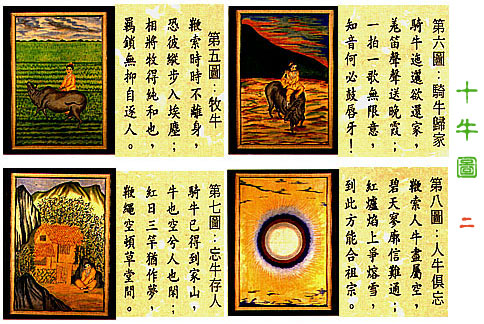 十牛圖 二
第五圖：牧牛
鞭索時時不離身，
恐彼縱步入埃塵；
相將牧得純和也，
羈鎖無抑自逐人。
第六圖：騎牛歸家
騎牛迤邐欲還家，
羌笛聲聲送晚霞；
一拍一歌無限意，
知音何必鼓唇牙！
第七圖：忘牛存人
騎牛已得到家山，
牛也空兮人也閑；
紅日三竿猶作夢，
鞭繩空頓草堂間。
第八圖：人牛俱忘
鞭索人牛盡屬空，
碧天寥廓信難通；
紅爐焰上爭熔雪，
到此方能合祖宗。